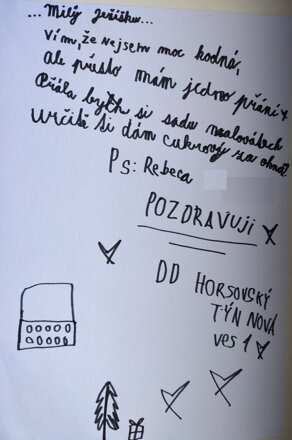 ...Milý Ježíšku...
Vím, že nejsem moc hodná,
ale přesto mám jedno přání
Přála bych si sadu na
Určitě ti dám cukrový za okno
Ps: Rebeca
POZDRAVUJI
DD HORSOVSKÝ
TÝN NOVÁ
ves 1